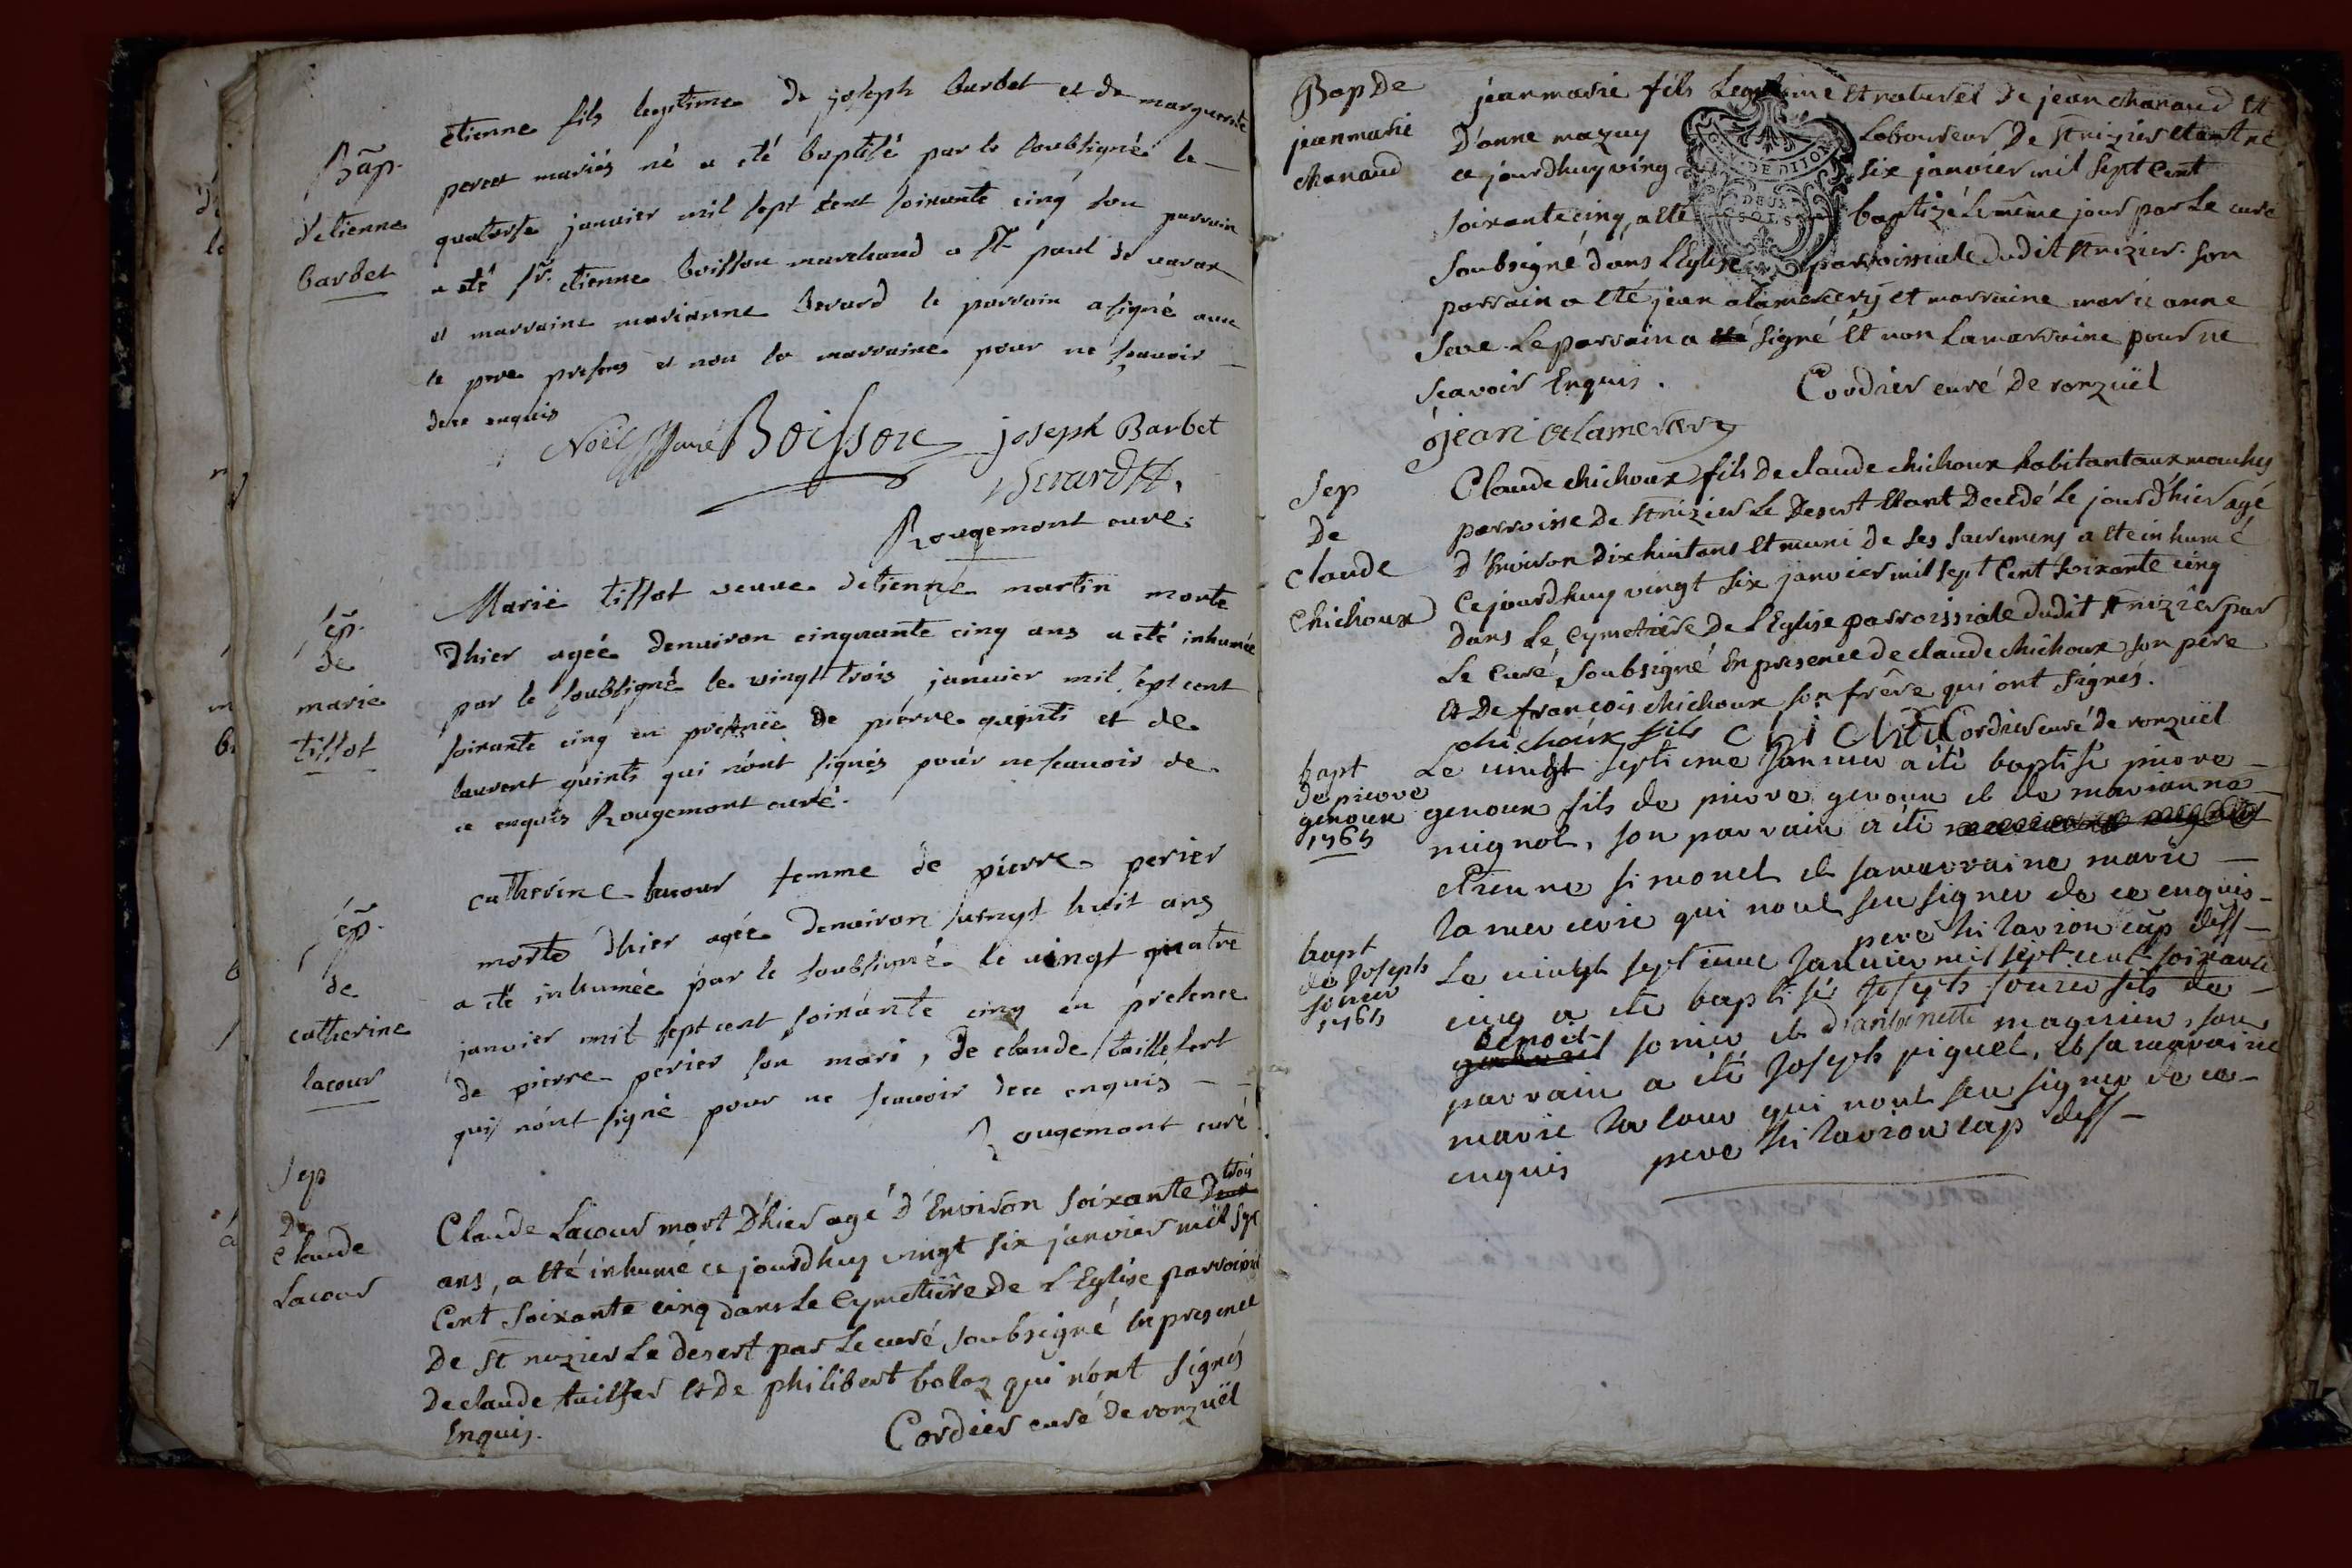 Bap.
d'etienne
barbet
etienne fils legitime de joseph barbet et de marguerite
peret mariés né a eté baptisé par le soubsigné le
quatorse janvier mil sept cent soixante cinq son parrain
a eté sr. etienne boisson marchand a St paul de varax
et marraine marianne berard le parrain a signé avec
le pere presens et non la marraine pour ne sçavoir
dece enquis
Noël curé Boisson joseph Barbet
Berard
Rougemont curé.
sep.
de
marie
tissot
Marie tissot veuve detienne martin morte
Dhier agée denviron cinquante cinq ans a eté inhumée
par le soubsigné le vingt trois janvier mil sept cent
soixante cinq en presence de pierre quinti et de
laurent quinti qui n'ont signés pour ne scavoir de
ce enquis Rougemont curé.
sep.
de
catherine
lacour
catherine lacour femme de pierre perier
morte dhier agée denviron vingt huit ans
a eté inhumée par le soubsigné le vingt quatre
janvier mil sept cent soixante cinq en presence
de pierre perier son mari, de claude taillefert
qui n'ont signé pour ne scavoir dece enquis
Rougemont curé.
Sep
De
Claude
Lacour
Claude Lacour mort D'hier agé d'Environ soixante Deux trois
ans, a eté inhumé ce jourdhuy vingt six janvier mil sept
Cent soixante cinq dans Le Cymetiere De L'Eglise parroissi
De St nizier Le desert par Le curé soubsigné En presence
De claude tailfer et De philibert boloz qui n'ont signés
Enquis.
Cordier curé De ronzuël
Bap De
jean marie
chanaud
jean marie fils Legitime Et naturel De jean chanaud Et
D'anne mazuy Laboureur De St nizier Etant né
ce jourdhuy ving six janvier mil sept Cent
soixante cinq, a eté baptizé Le même jour par Le curé
GEN. DE DIJON
DEUX
SOLS
soubsigné dans L'Eglise parroissiale dudit St nizier. son
parrain a eté jean alamercery et marraine marie anne
Seve Le parrain a eté signé Et non La marraine pour ne
scavoir Enquis. Cordier curé De ronzuël
jean alamercery
Sep
De
Claude
Chichoux
Claude chichoux fils De claude chichoux habitant aux mouches
parroisse De St nizier Le Desert Etant Decedé Le jour d'hier agé
d'Environ Dix huit ans Et muni de ses sacremens a eté inhumé
Ce jourdhuy vingt six janvier mil sept Cent soixante cinq
Dans Le Cymetiere De L'Eglise parroissiale dudit St nizier par
Le Curé, soubsigné En presence de claude chichoux son pere
et De françois chichoux son frere qui ont signés.
chichoux fils Cordier curé de ronzuel
bapt
de pierre
genoux
1765
Le vingt septieme janvier a été baptisé pierre
genoux fils de pierre genoux et de marianne
mignot, son parrain a été
etienne simonet et sa marraine marie
lamercerie qui nont seu signer de ce enquis
pere hilarion cap deff
bapt
de Joseph
sonier
1765
Le vingt septieme Janvier mil sept cent soixante
cinq a été baptisé Joseph sonier fils de
benoit sonier et d'antoinette magnien, son
parrain a été Joseph piquet, et sa marraine
marie la cour qui nont seu signer de ce
enquis pere hilarion cap deff